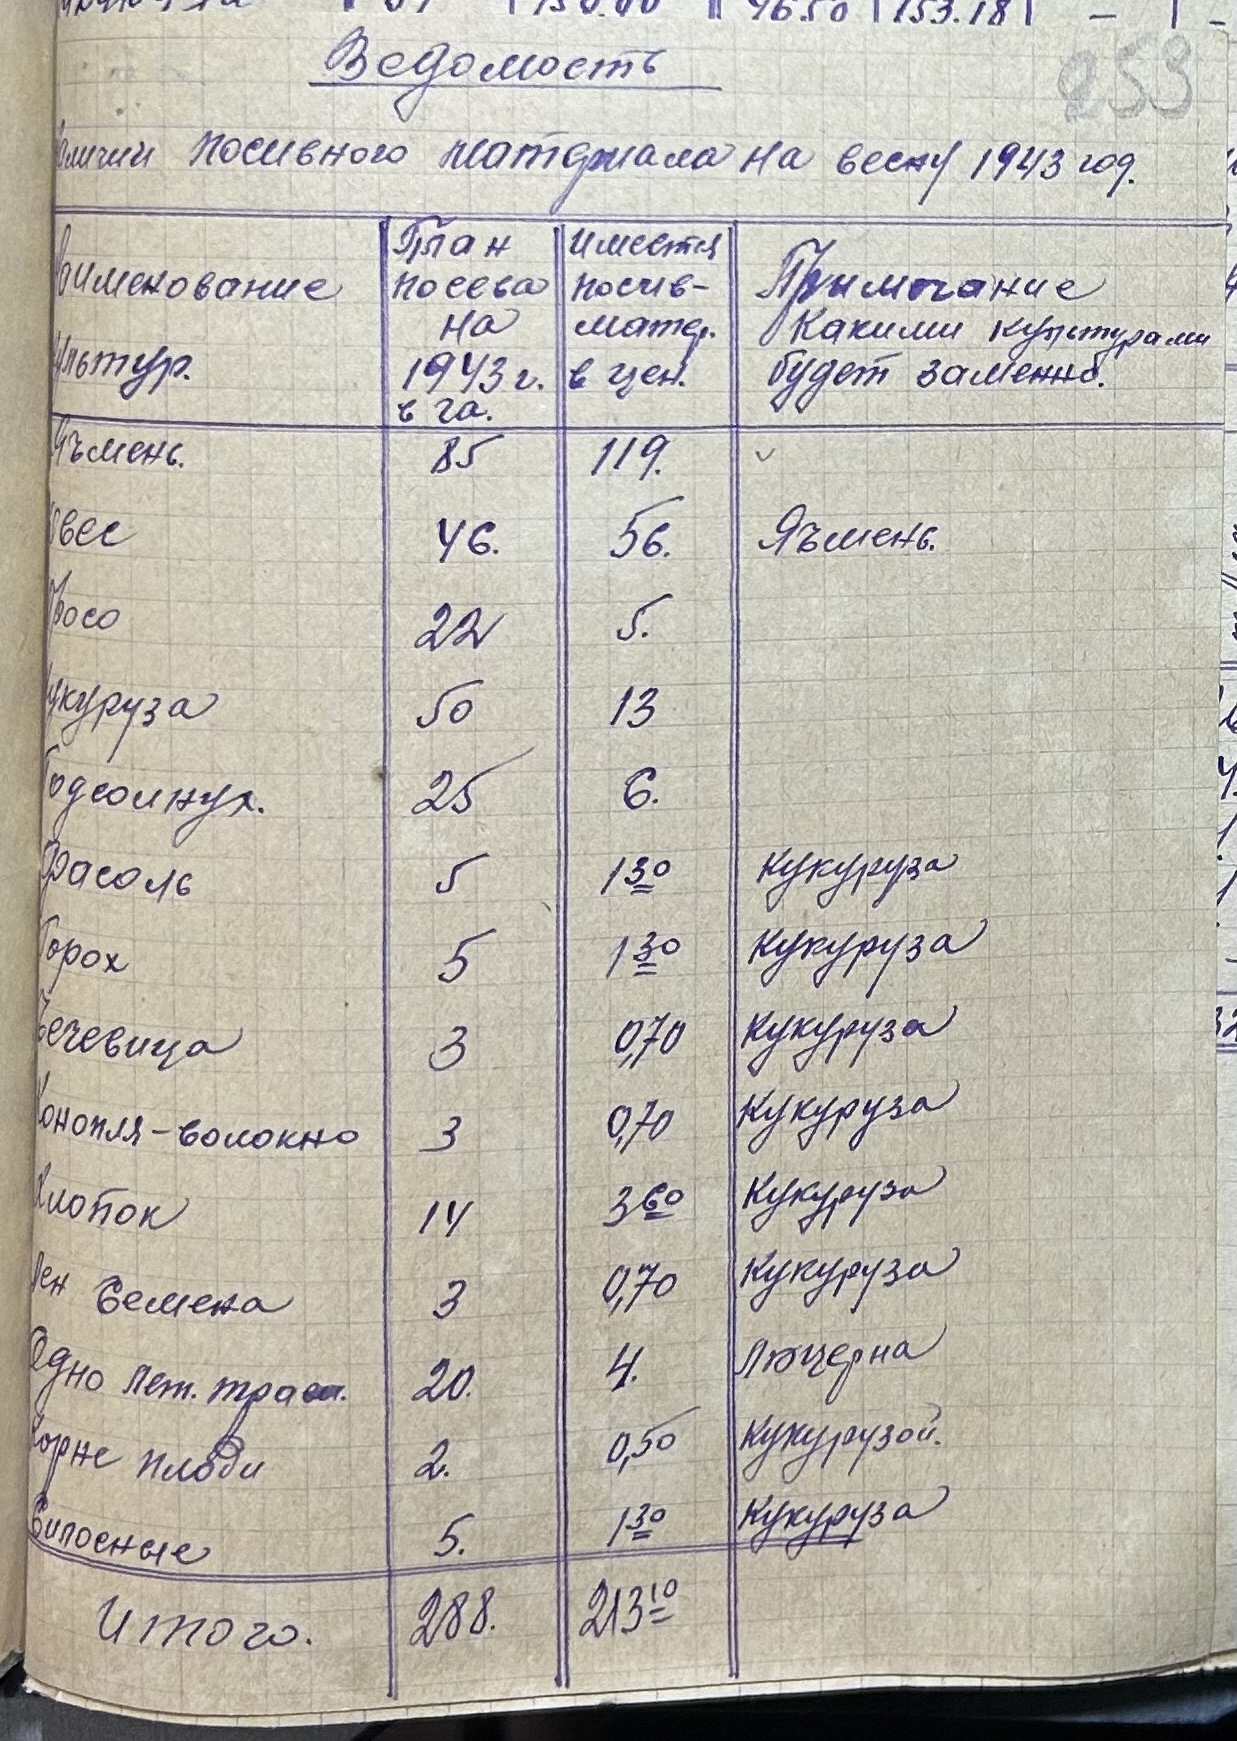 150.00 9650 153.18 —
Ведомость
253
наличии посивного материала на весну 1943 год.
Наименование культур. План посева на 1943 г. в га. Имеется посив- матер. в цен. Примечание Какими культурами будет заменнб.
Яъмень. 85 119. ˅
Овес 46. 56. Яъмень.
Просо 22 5.
Кукуруза 50 13
Подсолнух. 25 6.
Фасоль 5 1 30 Кукуруза
Горох 5 1 30 Кукуруза
Чечевица 3 0,70 Кукуруза
Конопля-волокно 3 0,70 Кукуруза
Хлопок 14 3 60 Кукуруза
Лен Семена 3 0,70 Кукуруза
Одно лет. трав. 20. 4. Люцерна
Корне плоди 2. 0,50 Кукурузой.
Силосные 5. 1 30 Кукуруза
Итого. 288. 213 10